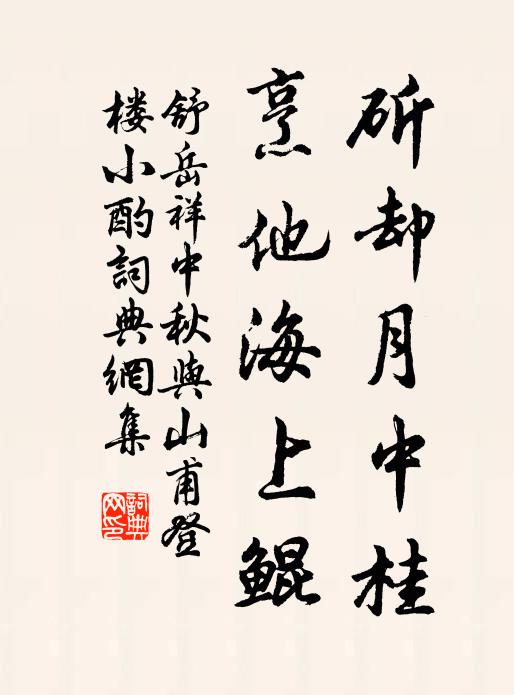 斫却月中桂
烹他海上鲲
舒岳祥中秋與山甫登
楼小酌詞典網集
詞典网印